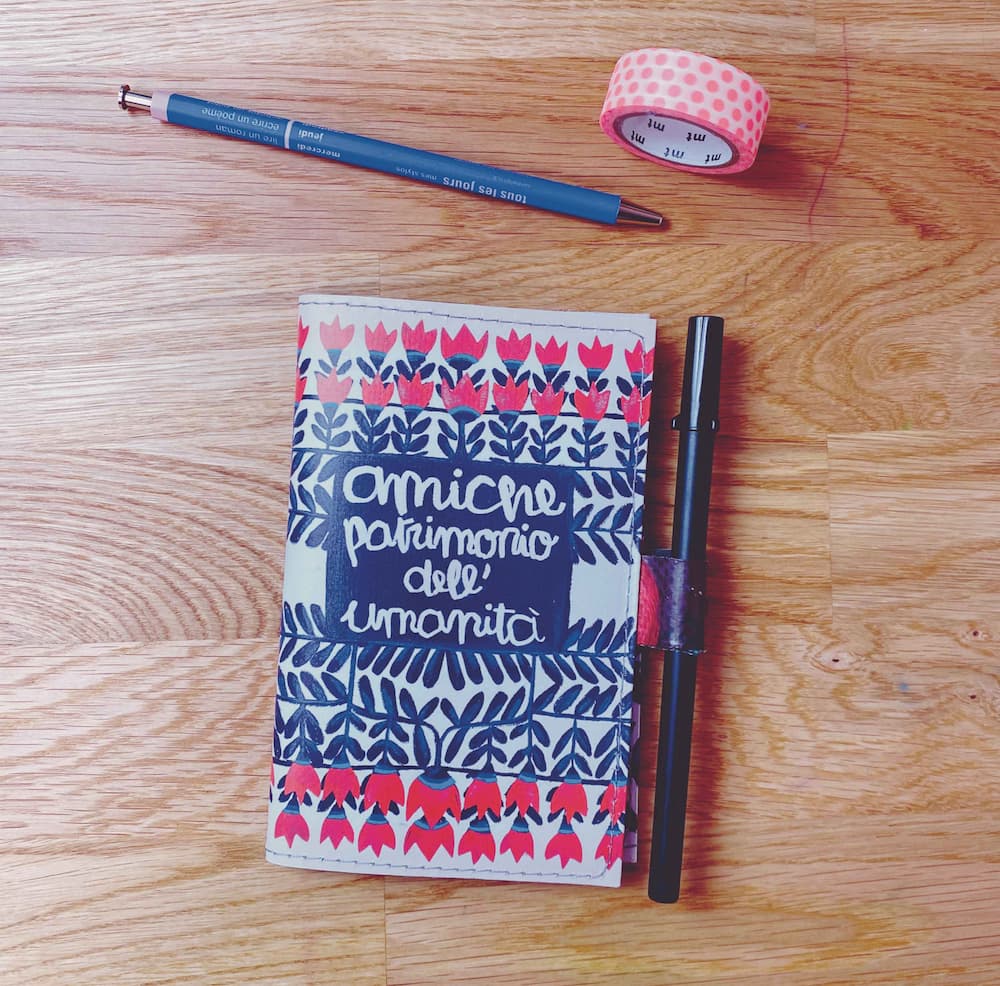 écrire un poème jeudi
lire un roman mercredi
mes stylos tous les jours
mt mt mt mt mt
amiche
patrimonio
dell'
umanità